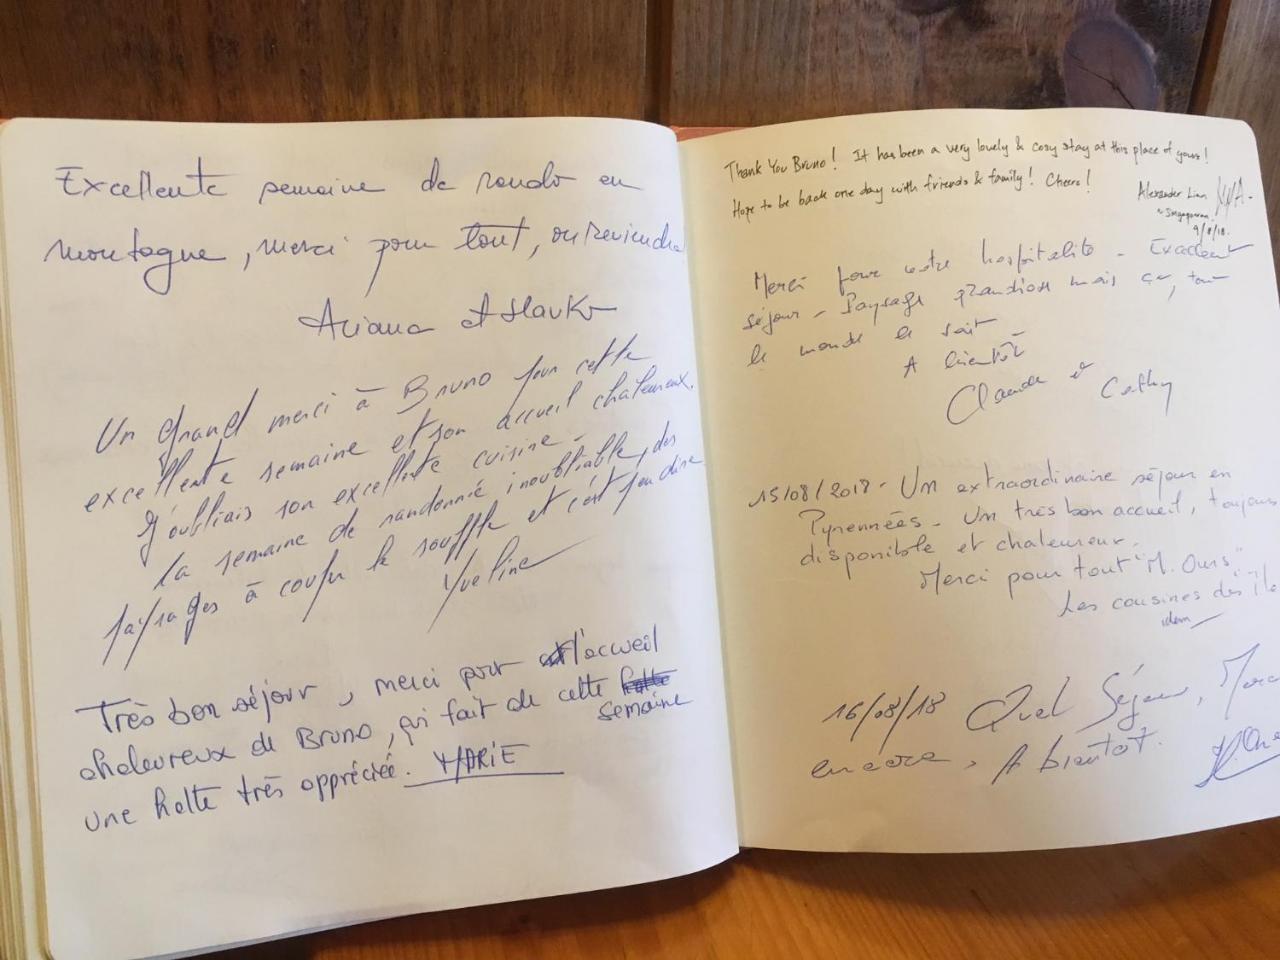 Excellente semaine de rando en
montagne, merci pour tout, on reviendra
Ariana et Slavko
Un grand merci à Bruno pour cette
excellente semaine et son accueil chaleureux.
J'oubliais son excellente cuisine -
La semaine de randonnée inoubliable, des
paysages à couper le souffle et c'est peu dire
Yveline
Très bon séjour, merci pour l'accueil
chaleureux de Bruno, qui fait de cette semaine
une halte très appréciée. MARIE
Thank You Bruno! It has been a very lovely & cosy stay at this place of yours!
Hope to be back one day with friends & family! Cheers!
Alexander Lian
~ Singaporean
9/8/18.
Merci pour votre hospitalité - Excellent
séjour - Paysage grandiose mais ça, tout
le monde le sait -
A bientôt
Claude et Cathy
15/08/2018 - Un extraordinaire séjour en
Pyrennées - Un très bon accueil, toujours
disponible et chaleureux.
Merci pour tout "M. Ours"
Les cousines des île
16/08/18 Quel Séjour, Merci
encore, A bientôt.